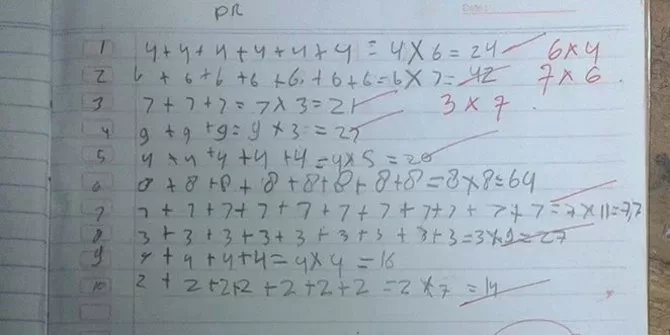 PR
1 4+4+4+4+4+4 = 4×6 = 24 6×4
2 6+6+6+6+6+6+6=6×7=42 7×6
3 7+7+7=7×3=21 3×7
4 9+9+9=9×3=27
5 4×4+4+4+4=4×5=20
6 8+8+8+8+8+8+8+8=8×8=64
7 7+7+7+7+7+7+7+7+7+7+7=7×11=77
8 3+3+3+3+3+3+3+3+3=3×9=27
9 4+4+4+4=4×4=16
10 2+2+2+2+2+2+2=2×7=14